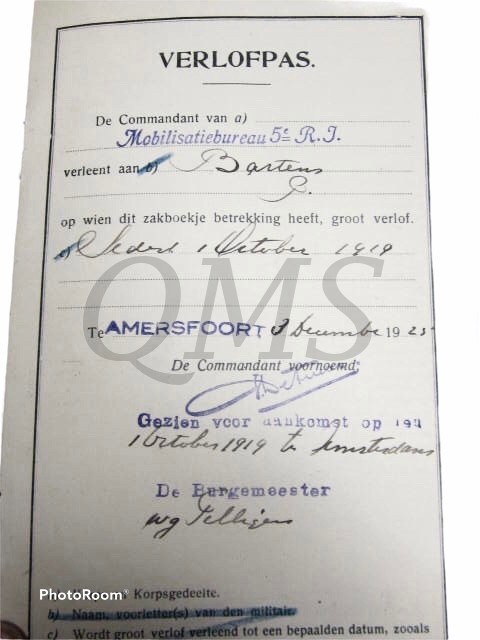 VERLOFPAS.
De Commandant van a)
Mobilisatiebureau 5e R.I.
verleent aan b) Bartens
G.
op wien dit zakboekje betrekking heeft, groot verlof.
c) Sedert 1 October 1919
QMS
Te AMERSFOORT 3 Decembe 1925
De Commandant voornoemd,
Gezien voor aankomst op
1 October 1919 te Amsterdam
De Burgemeester
wg
PhotoRoom
Korpsgedeelte.
b) Naam, voorletter(s) van den militair.
c) Wordt groot verlof verleend tot een bepaalden datum, zooals